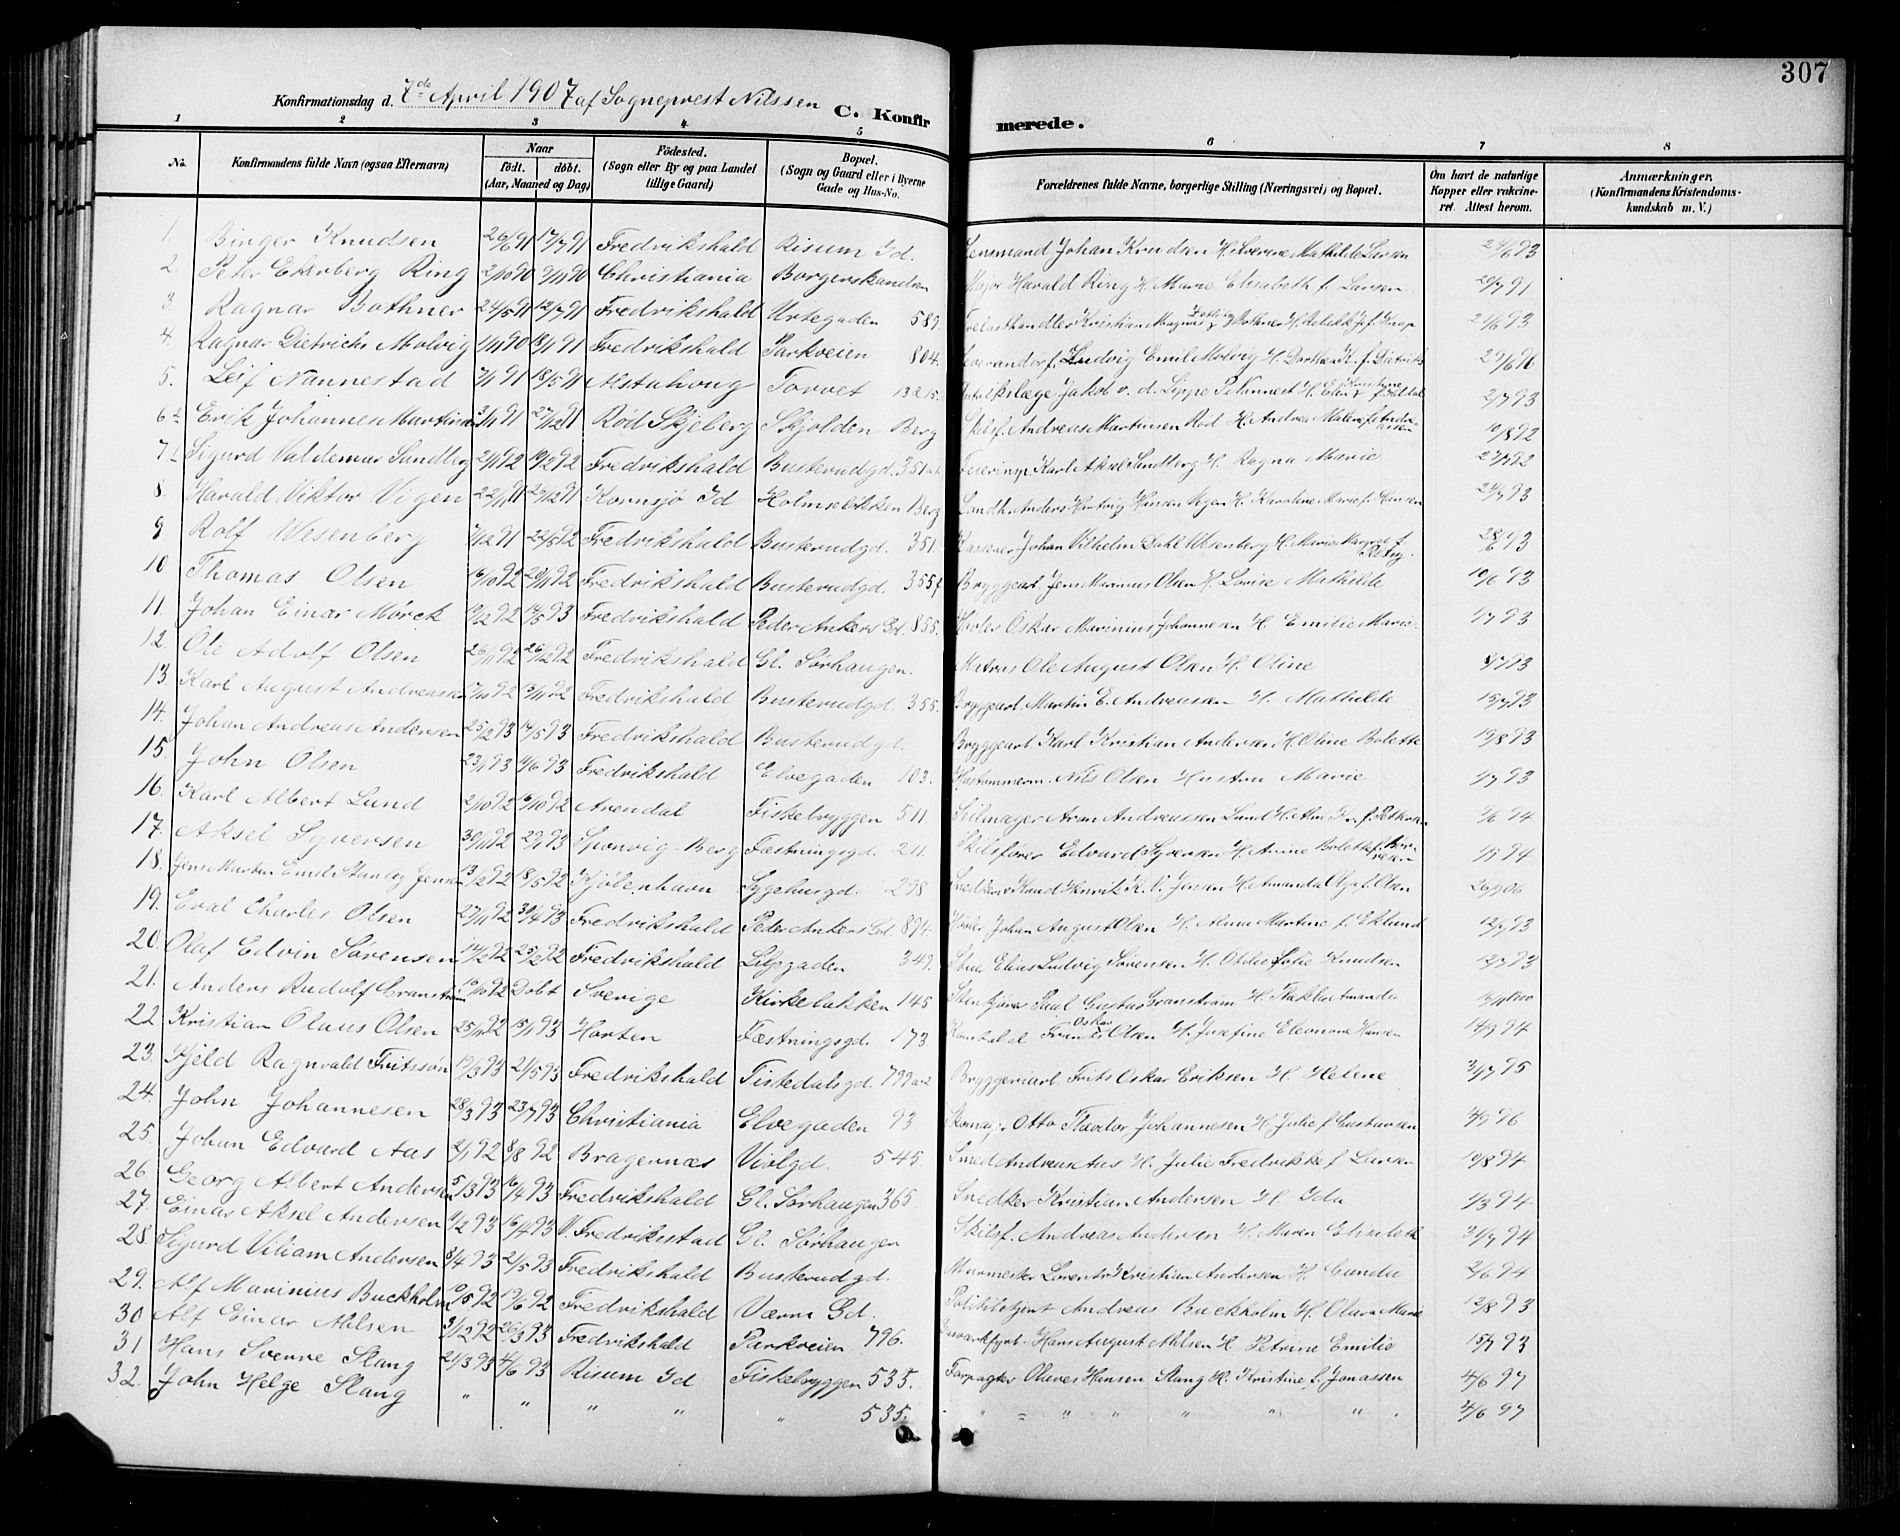 307
Konfirmationsdag d. 7de April 1907 af Sogneprest Nilssen C. Konfirmerede.
1 2 3 4 5 6 7 8
No. Konfirmandens fulde Navn (ogsaa Efternavn) Naar født. døbt. (Aar, Maaned og Dag) Fødested. (Sogn eller By og paa Landet tillige Gaard) Bopæl. (Sogn og Gaard eller i Byerne Gade og Hus-No. Forældrenes fulde Navne, borgerlige Stilling (Næringsvei) og Bopæl. Om havt de naturlige Kopper eller vakcineret. Attest herom. Anmærkninger. (Konfirmandens Kristendomskundskab m. V.)
1. Birger Knudsen 26/6 91 17/7 91 Fredrikshald Risum Id. Lensmand Johan Knudsen H. Severine Mathilde Larsen 24/6 93
2. Peter Ekerberg Ring 2/10 90 9/11 90 Christiania Borgerskandsen Major Harald Ring H. Marie Elisabeth f. Larsen 20/7 91
3. Ragnar Bothner 24/5 91 12/7 91 Fredrikshald Urtegaden 589. Kristian Magnus Bothner H. 21/6 93
4. Ragnar Dietrichs Molvig 1/11 90 18/1 91 Fredrikshald Parkveien 804. Ludvig Emil Molvig H. Dorthea K. f. Dietrichs 29/6 96
5. Leif Nannestad 7/1 91 18/5 91 Alstahoug Torvet 13 a 15. Jakob v. d. Lippe P. Nannest. H. 2/7 93
6. Erik Johannes Martinsen 3/11 91 27/12 91 Rød Skjeberg Skjolden Berg Skilsf. Andreas Martinsen Rød H. Andrea Malene f. Andreassen 10/8 92
7. Sigurd Valdemar Sandberg 2/1 92 19/2 92 Fredrikshald Busterudgd. 351 Karl Aksel Sandberg H. Ragna Marie 27/7 92
8. Harald Viktor Vigen 22/11 91 26/12 91 Kornsjø Id Holmseløkken Berg Landh. Anders Hartvig Hansen Vigen H. Karoline Marie f. Hansen 24/7 93
9. Rolf Wesenberg 7/12 91 22/5 92 Fredrikshald Busterudgd. 351. Johan Vilhelm Dahl Wesenberg H. Marie Margret f. 28/6 93
10 Thomas Olsen 16/10 92 20/11 92 Fredrikshald Busterudgd. 355 f Bryggearb. Jens Marinus Olsen H. Lovise Mathilde 10/6 93
11. Johan Einar Mørck 19/2 92 14/5 93 Fredrikshald Peder Ankers Gd. 855. Oskar Marinius Johannesen H. Emilie Marie 1/7 93
12. Ole Adolf Olsen 26/11 92 26/12 92 Fredrikshald Gl. Sørhaugen. Matros Ole August Olsen H. Oline 8/7 93
13. Karl August Andreassen 17/10 92 13/11 92 Fredrikshald Busterudgd. 355. Bryggearb. Martin E. Andreassen H. Mathilde 15/7 93
14. Johan Andreas Andersen 25/2 93 14/5 93 Fredrikshald Busterudgd. Bryggearb. Karl Kristian Andersen H. Oline Bolette 19/8 93
15. John Olsen 23/1 93 4/6 93 Fredrikshald Elvegaden 103. Nils Olsen Hustru Marie 1/7 93
16. Karl Albert Lund 2/10 92 16/10 92 Arendal Fiskebryggen 511. Seilmager Arnt Andreassen Lund H. 9/6 94
17. Aksel Syversen 30/11 92 29/1 93 Sponvig Berg Fæstningsgd. 211. Skilsfører Edvard Syversen H. Anine Bolette f. 1/9 94
18. Jens Martin Emil Stanley Jensen 13/2 92 8/5 92 Kjøbenhavn Sygehusgd. 298 Snedker Knud Henrik K. V. Jensen H. Amanda Olga f. Olsen 26/9 06
19. Eval Charles Olsen 27/11 92 30/4 93 Fredrikshald Peder Ankers Gd. 894. Johan August Olsen H. Alma Martine f. Eklund 12/7 93
20. Olaf Edvin Sørensen 14/2 92 25/2 92 Fredrikshald Liljegaden 349. Elias Ludvig Sørensen H. Otilie Sofie Knudsen 12/7 93
21. Anders Rudolf Granstrøm 10/10 92 Døbt Sverige Kirkeløkken 145 Paul Gustav Granstrøm H. 1900
22. Kristian Olaus Olsen 25/11 92 15/1 93 Horten Fæstningsgd. 173. Konstabel Frants Oskar Olsen H. Josefine Eleonora Hansen 14/9 94
23. Kjeld Ragnvald Fritssøn 19/3 93 21/5 93 Fredrikshald Tistedalsgd. 799 a 2 Bryggeriarb. Frits Oskar Eriksen H. Helene 3/7 95
24. John Johannesen 28/3 93 23/7 93 Christiania Elvegaden 93 Skomag. Otto Theodor Johannesen H. Julie f. Gustavsen 4/9 96
25. Johan Edvard Aas 2/1 92 8/8 92 Bragernæs Violgd. 545. Smed Andreas Aas H. Julie Fredrikke f. Larsen 10/8 94
26. Georg Albert Andersen 5/3 93 16/4 93 Fredrikshald Gl. Sørhaugen 365 Snedker Kristian Andersen H. Ida 1/3 94
27. Einar Aksel Andersen 9/2 93 16/4 93 V. Fredriksstad Gl. Sørhaugen Skilsf. Andreas Andersen H. Maren Elisabeth 31/7 94
28. Sigurd Viliam Andersen 8/4 93 21/5 93 Fredrikshald Busterudgd. Murmester Lorents Kristian Andersen H. Gunda 2/6 94
29. Alf Marinius Buckholm 10/5 92 19/6 92 Fredrikshald Værns Gd. Politibetjent Andreas Buckholm H. Olava Marie 12/8 93
30 Alf Einar Ahlsen 3/12 92 26/3 93 Fredrikshald Parkveien 796. Hans August Ahlsen H. Petrine Emilie 15/7 93
31 Hans Sverre Stang 21/3 93 4/6 93 Risum Id Fiskebryggen 535. Forpagter Olaves Hansen Stang H. Kristine f. Jonassen 4/6 97
32. John Helge Stang " " " " " 535. " " " " " " " 4/6 97